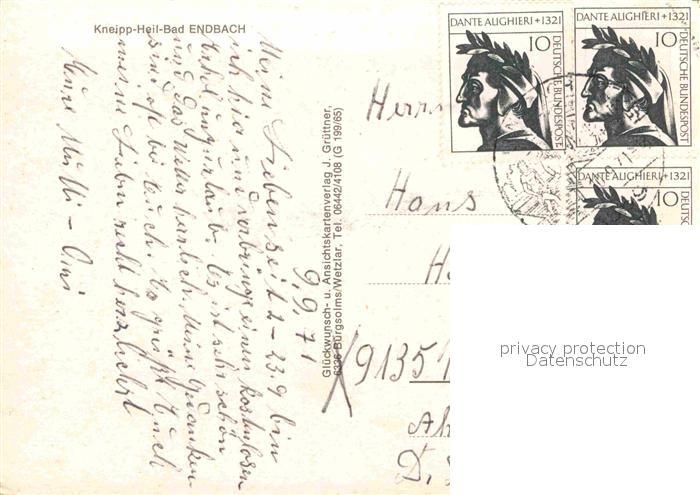 Kneipp-Heil-Bad ENDBACH
9.9.71
Meine Lieben seit 2-23.9 bin
ich hier und verbringe einen kostenlosen
Erholungsurlaub. Es ist sehr schön
und das Wetter herrlich. Meine Gedanken
sind oft bei Euch. Es grüßt Euch
meine Lieben recht herzlichst
Eure Mutti-Omi
Glückwunsch- u. Ansichtskartenverlag J. Grüttner,
6336 Burgsolms/Wetzlar, Tel. 06442/4108 (G 199/65)
DANTE ALIGHIERI +1321
10
DEUTSCHE BUNDESPOST
DANTE ALIGHIERI +1321
10
DEUTSCHE BUNDESPOST
DANTE ALIGHIERI +1321
10
Herrn
Hans
9135
privacy protection
Datenschutz